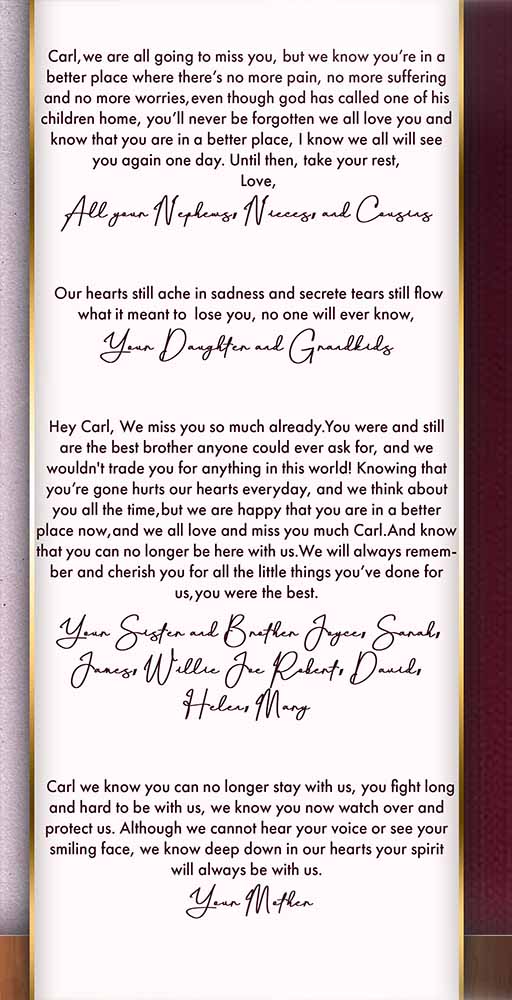 Carl,we are all going to miss you, but we know you're in a
better place where there's no more pain, no more suffering
and no more worries,even though god has called one of his
children home, you'll never be forgotten we all love you and
know that you are in a better place, I know we all will see
you again one day. Until then, take your rest,
Love,
All your Nephews, Nieces, and Cousins
Our hearts still ache in sadness and secrete tears still flow
what it meant to lose you, no one will ever know,
Your Daughter and Grandkids
Hey Carl, We miss you so much already.You were and still
are the best brother anyone could ever ask for, and we
wouldn't trade you for anything in this world! Knowing that
you're gone hurts our hearts everyday, and we think about
you all the time,but we are happy that you are in a better
place now,and we all love and miss you much Carl.And know
that you can no longer be here with us.We will always remem-
ber and cherish you for all the little things you've done for
us,you were the best.
Your Sister and Brother Joyce, Sarah,
James, Willie Joe Robert, David,
Helen, Mary
Carl we know you can no longer stay with us, you fight long
and hard to be with us, we know you now watch over and
protect us. Although we cannot hear your voice or see your
smiling face, we know deep down in our hearts your spirit
will always be with us.
Your Mother